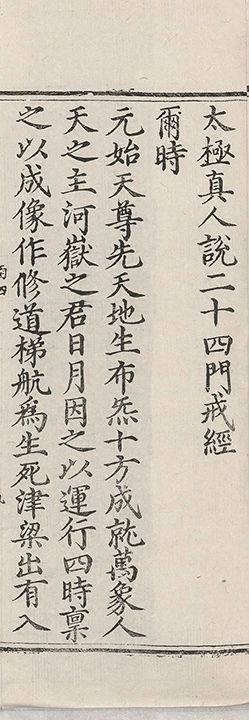 太極真人說二十四門戒經
爾時
元始天尊先天地生布炁十方成就萬象人
天之主河嶽之君日月因之以運行四時稟
之以成像作修道梯航為生死津梁出有入